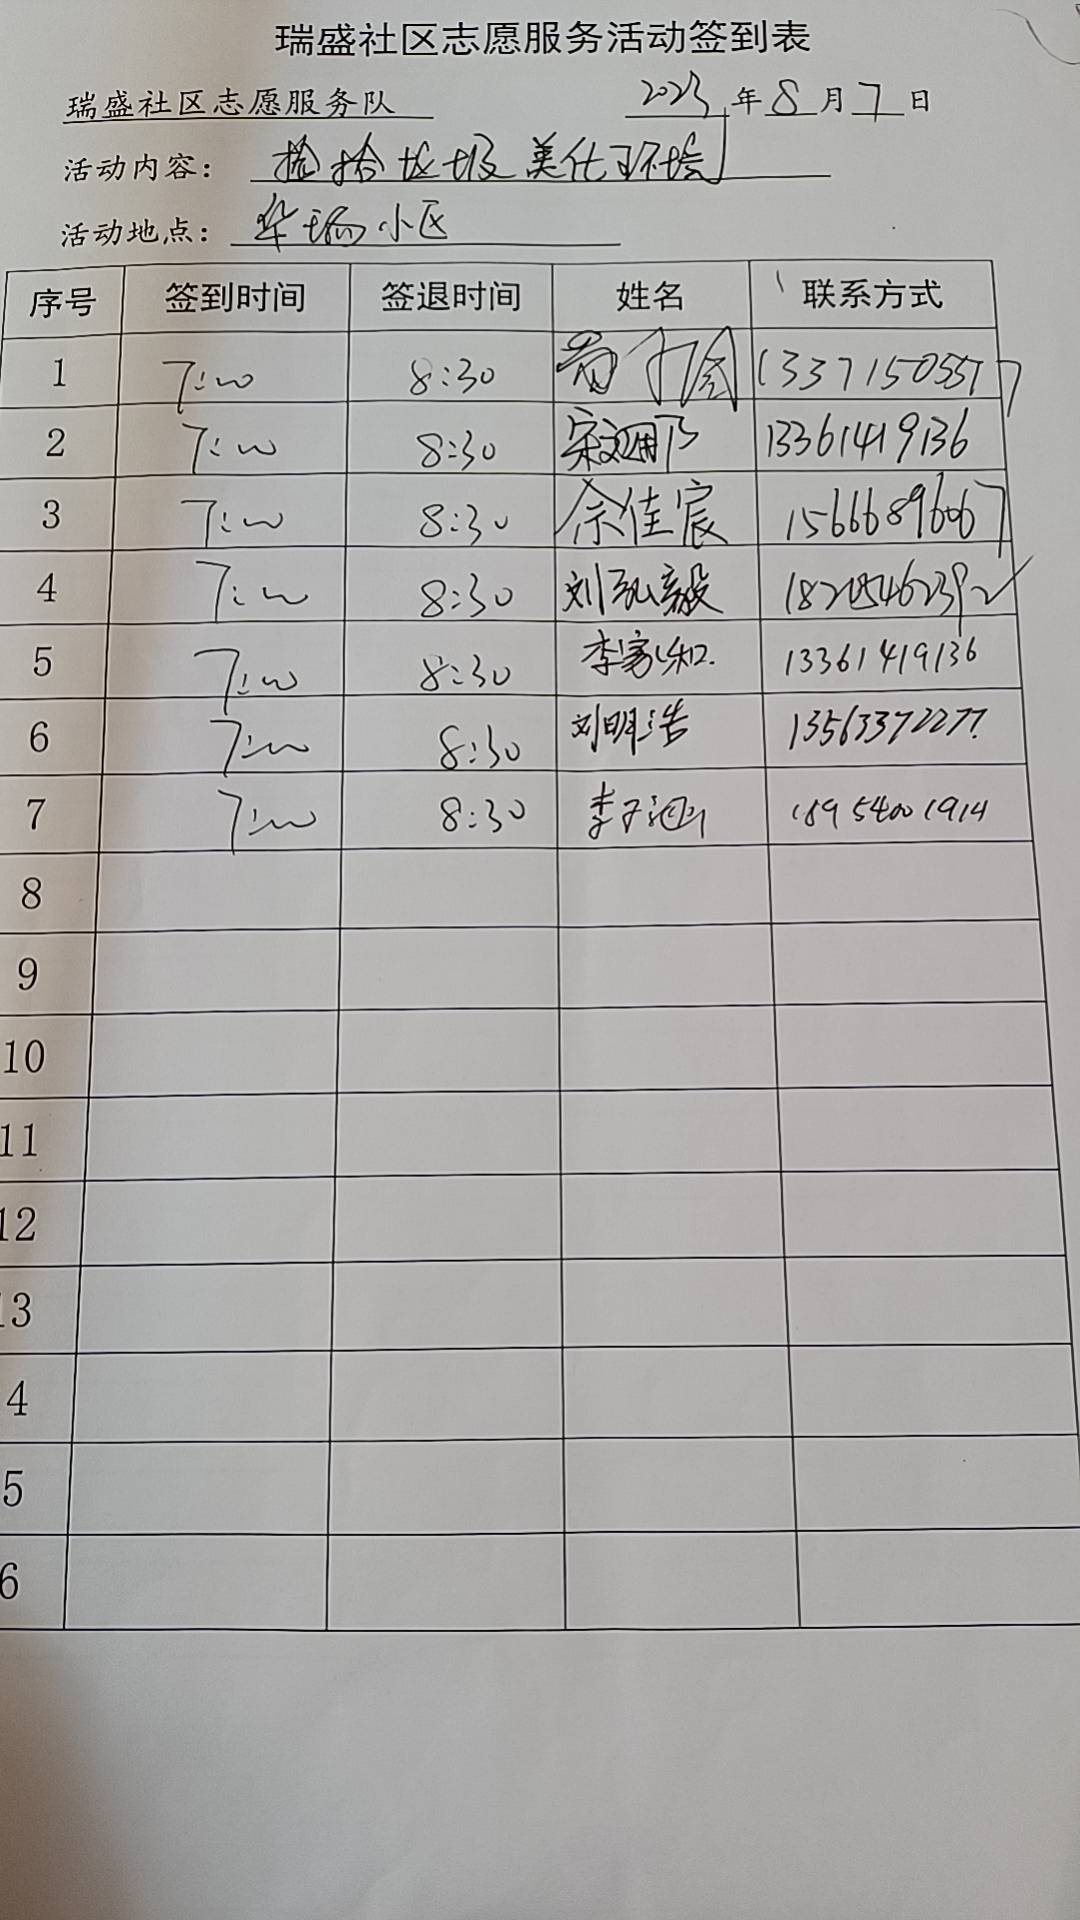 瑞盛社区志愿服务活动签到表
瑞盛社区志愿服务队 2023年8月7日
活动内容：捡拾垃圾 美化环境
活动地点：华瑞小区
序号 签到时间 签退时间 姓名 联系方式
1 7:00 8:30 13371505577
2 7:00 8:30 13361419136
3 7:00 8:30 余佳宸 15666896067
4 7:00 8:30 刘弘毅
5 7:00 8:30 李家和 13361419136
6 7:00 8:30 刘明浩 13563372277
7 7:00 8:30 李子 18954001914
8
9
10
11
12
13
4
5
6